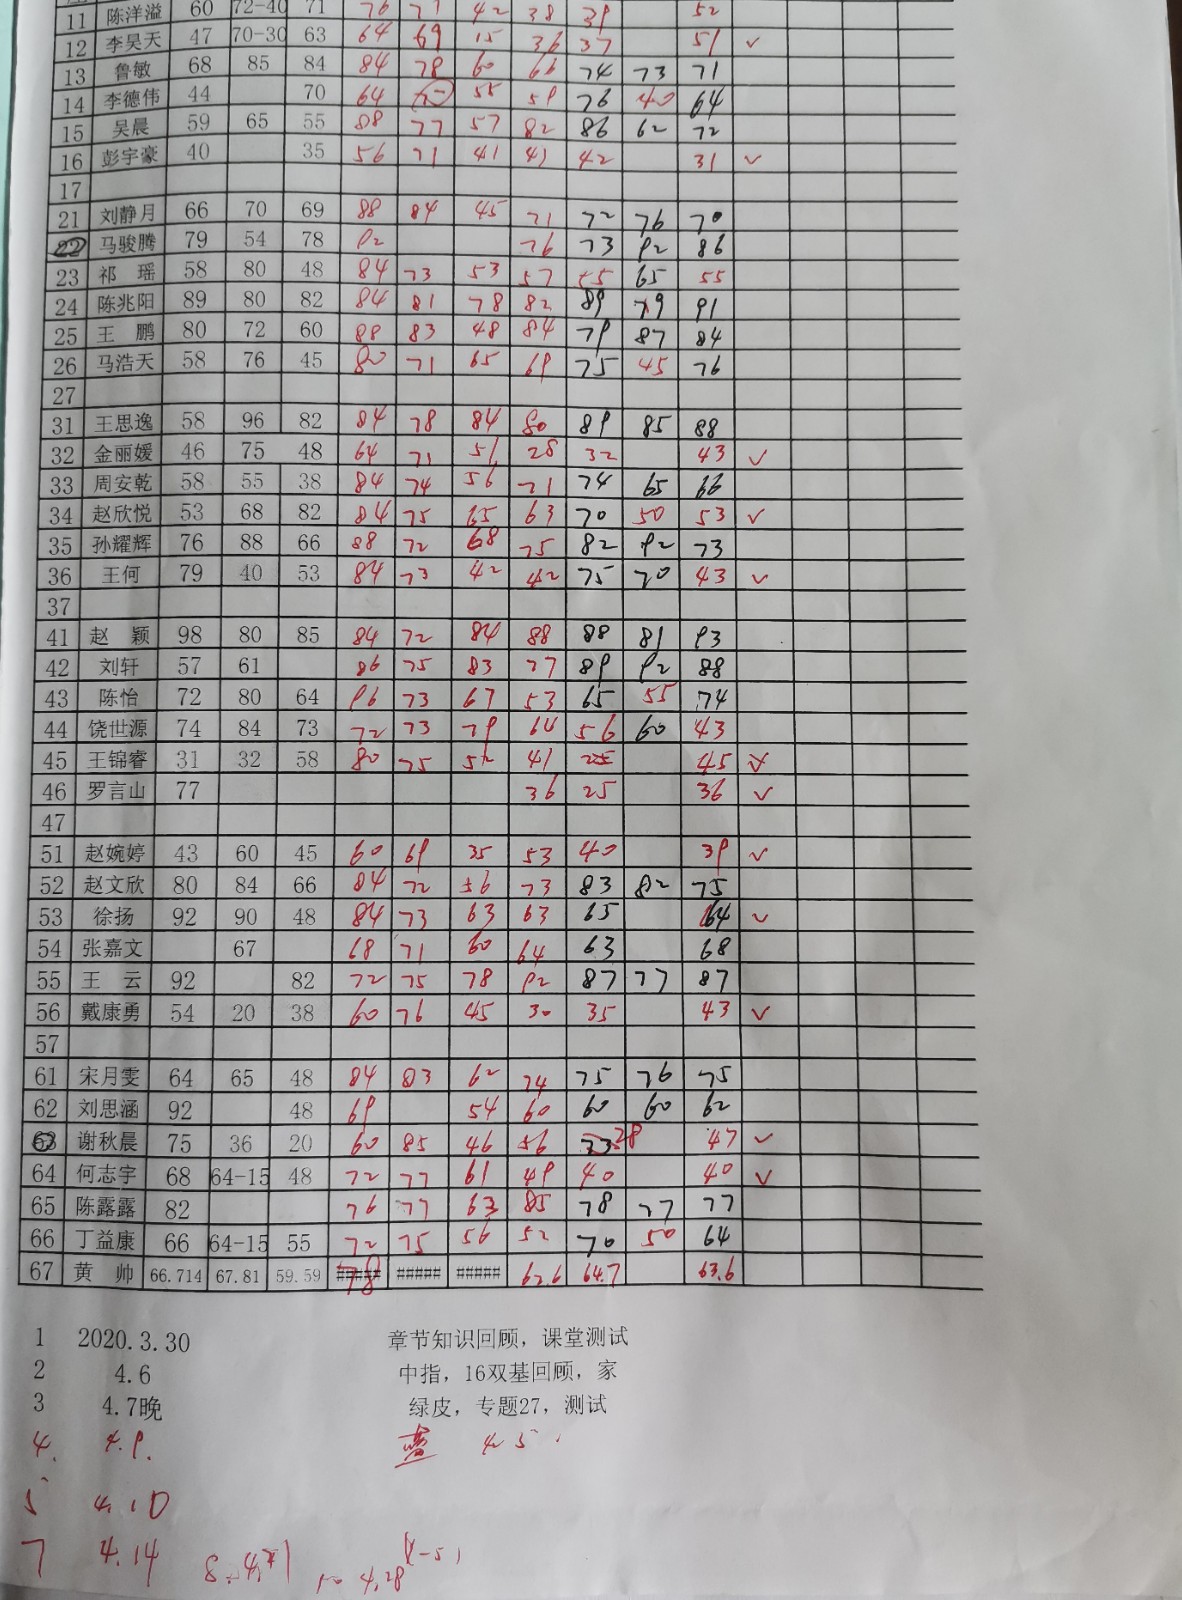 11 陈洋溢 60 72-40 71 76 77 42 38 39 52
12 李昊天 47 70-30 63 64 69 15 36 37 51 ✓
13 鲁敏 68 85 84 84 78 60 66 74 73 71
14 李德伟 44 70 64 55 59 76 40 64
15 吴晨 59 65 55 88 77 57 82 86 62 72
16 彭宇豪 40 35 56 71 41 41 42 31 ✓
17
21 刘静月 66 70 69 88 84 45 71 72 76 70
22 马骏腾 79 54 78 92 76 73 92 86
23 祁 瑶 58 80 48 84 73 53 57 55 65 55
24 陈兆阳 89 80 82 84 81 78 82 89 79 91
25 王 鹏 80 72 60 88 83 48 84 79 87 84
26 马浩天 58 76 45 80 71 65 69 75 45 76
27
31 王思逸 58 96 82 84 78 84 80 89 85 88
32 金丽媛 46 75 48 64 71 51 28 32 43 ✓
33 周安乾 58 55 38 84 74 56 71 74 65 66
34 赵欣悦 53 68 82 84 75 65 63 70 50 53 ✓
35 孙耀辉 76 88 66 88 72 68 75 82 92 73
36 王何 79 40 53 84 73 42 42 75 70 43 ✓
37
41 赵 颖 98 80 85 84 72 84 88 88 81 93
42 刘轩 57 61 86 75 83 77 89 92 88
43 陈怡 72 80 64 96 73 67 53 65 55 74
44 饶世源 74 84 73 72 73 79 64 56 60 43
45 王锦睿 31 32 58 80 75 52 41 45 ✓
46 罗言山 77 36 25 36 ✓
47
51 赵婉婷 43 60 45 60 69 35 53 40 39 ✓
52 赵文欣 80 84 66 84 72 56 73 83 82 75
53 徐扬 92 90 48 84 73 63 63 65 64 ✓
54 张嘉文 67 68 71 60 64 63 68
55 王 云 92 82 72 75 78 92 87 77 87
56 戴康勇 54 20 38 60 76 45 30 35 43 ✓
57
61 宋月雯 64 65 48 84 83 62 74 75 76 75
62 刘思涵 92 48 69 54 60 60 60 62
63 谢秋晨 75 36 20 60 85 46 56 38 47 ✓
64 何志宇 68 64-15 48 72 77 61 49 40 40 ✓
65 陈露露 82 76 77 63 85 78 77 77
66 丁益康 66 64-15 55 72 75 56 52 70 50 64
67 黄 帅 66.714 67.81 59.59 ##### 78 ##### ##### 62.6 64.7 63.6
1 2020.3.30 章节知识回顾，课堂测试
2 4.6 中指，16双基回顾，家
3 4.7晚 绿皮，专题27，测试
4. 4.9. 4 5
5 4.10
7 4.14
4.28 (4-5)